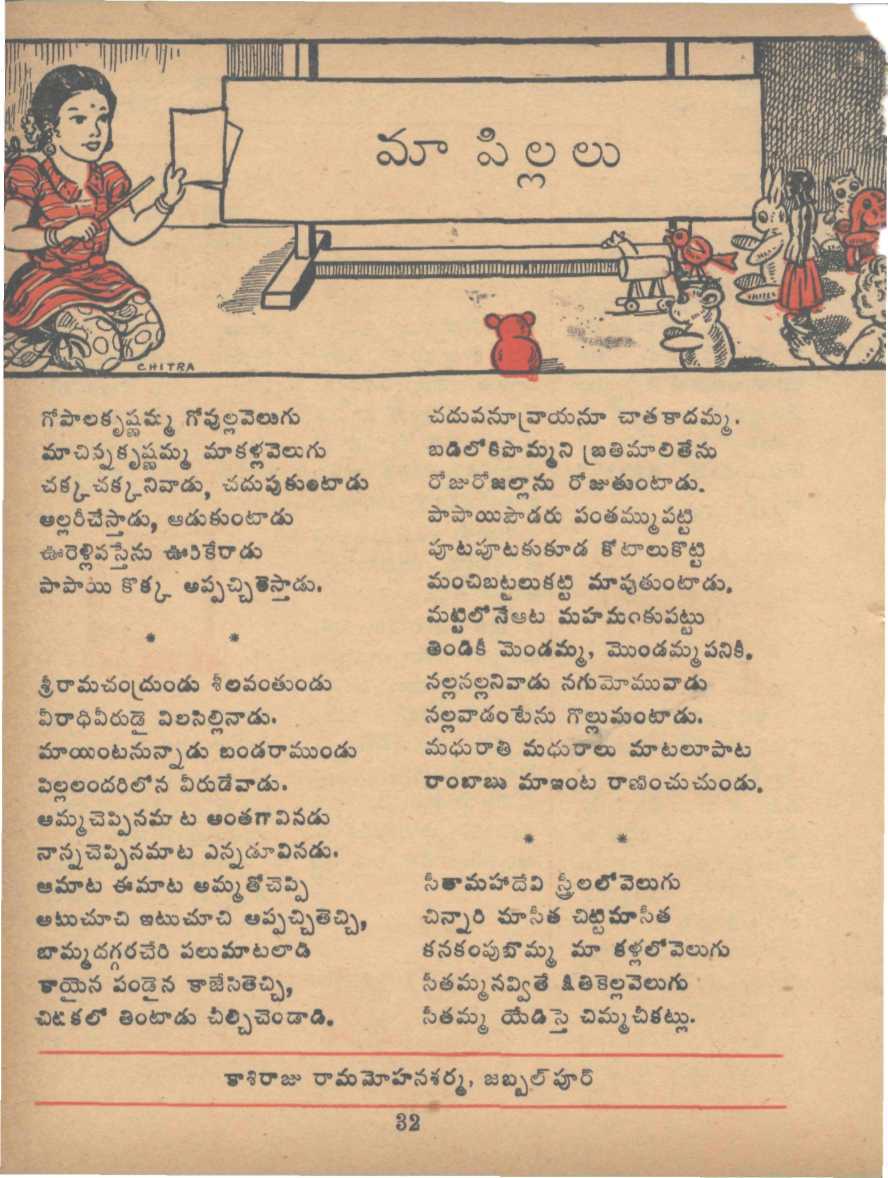 మా పిల్లలు
CHITRA
గోపాలకృష్ణమ్మ గోవుల్లవెలుగు
మాచిన్నకృష్ణమ్మ మాకళ్లవెలుగు
చక్కచక్కనివాడు, చదువుకుంటాడు
అల్లరీచేస్తాడు, ఆడుకుంటాడు
ఊరెళ్లివస్తేను ఊరికేరాడు
పాపాయి కొక్క అప్పచ్చితెస్తాడు.
* *
శ్రీరామచంద్రుండు శీలవంతుండు
వీరాధివీరుడై విలసిల్లినాడు.
మాయింటనున్నాడు బండరాముండు
పిల్లలందరిలోన వీరుడేవాడు.
అమ్మచెప్పినమాట అంతగావినడు
నాన్నచెప్పినమాట ఎన్నడూవినడు.
ఆమాట ఈమాట అమ్మతోచెప్పి
అటుచూచి ఇటుచూచి అప్పచ్చితెచ్చి,
బామ్మదగ్గరచేరి పలుమాటలాడి
కాయైన పండైన కాజేసితెచ్చి,
చిటికలో తింటాడు చీల్చిచెండాడి.
చదువనూవ్రాయనూ చాతకాదమ్మ.
బడిలోకిపొమ్మని బ్రతిమాలితేను
రోజురోజల్లాను రోజుతుంటాడు.
పాపాయిపౌడరు పంతమ్ముపట్టి
పూటపూటకుకూడ కోటాలుకొట్టి
మంచిబట్టలుకట్టి మాపుతుంటాడు.
మట్టిలోనేఆట మహమంకుపట్టు
తిండికీ మెండమ్మ, మొండమ్మపనికీ.
నల్లనల్లనివాడు నగుమోమువాడు
నల్లవాడంటేను గొల్లుమంటాడు.
మధురాతి మధురాలు మాటలూపాట
రాంబాబు మాఇంట రాణించుచుండు.
* *
సీతామహాదేవి స్త్రీలలోవెలుగు
చిన్నారి మాసీత చిట్టిమాసీత
కనకంపుబొమ్మ మా కళ్లలోవెలుగు
సీతమ్మనవ్వితే క్షితికెల్లవెలుగు
సీతమ్మ యేడిస్తె చిమ్మచీకట్లు.
కాశిరాజు రామమోహనశర్మ, జబ్బల్‌పూర్
32